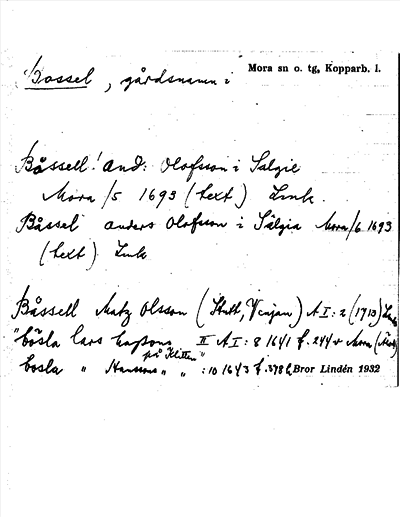 Bossel, gårdsnamn i
Mora sn o. tg, Kopparb. l.
Båssell! And: Olofsson i Salgie
Mora /5 1693 (text) Link.
Båssel anders Olofsson i Sälgia Mora /6 1693
(text) Link
Båssell Matz Olsson (Venjan) A I: 2 (1713)
"bösla lars II A I: 8 1641 f. 244 v Mora
på Klitten"
bösla " Hansson " " : 10 1643 f. 378
Bror Lindén 1932